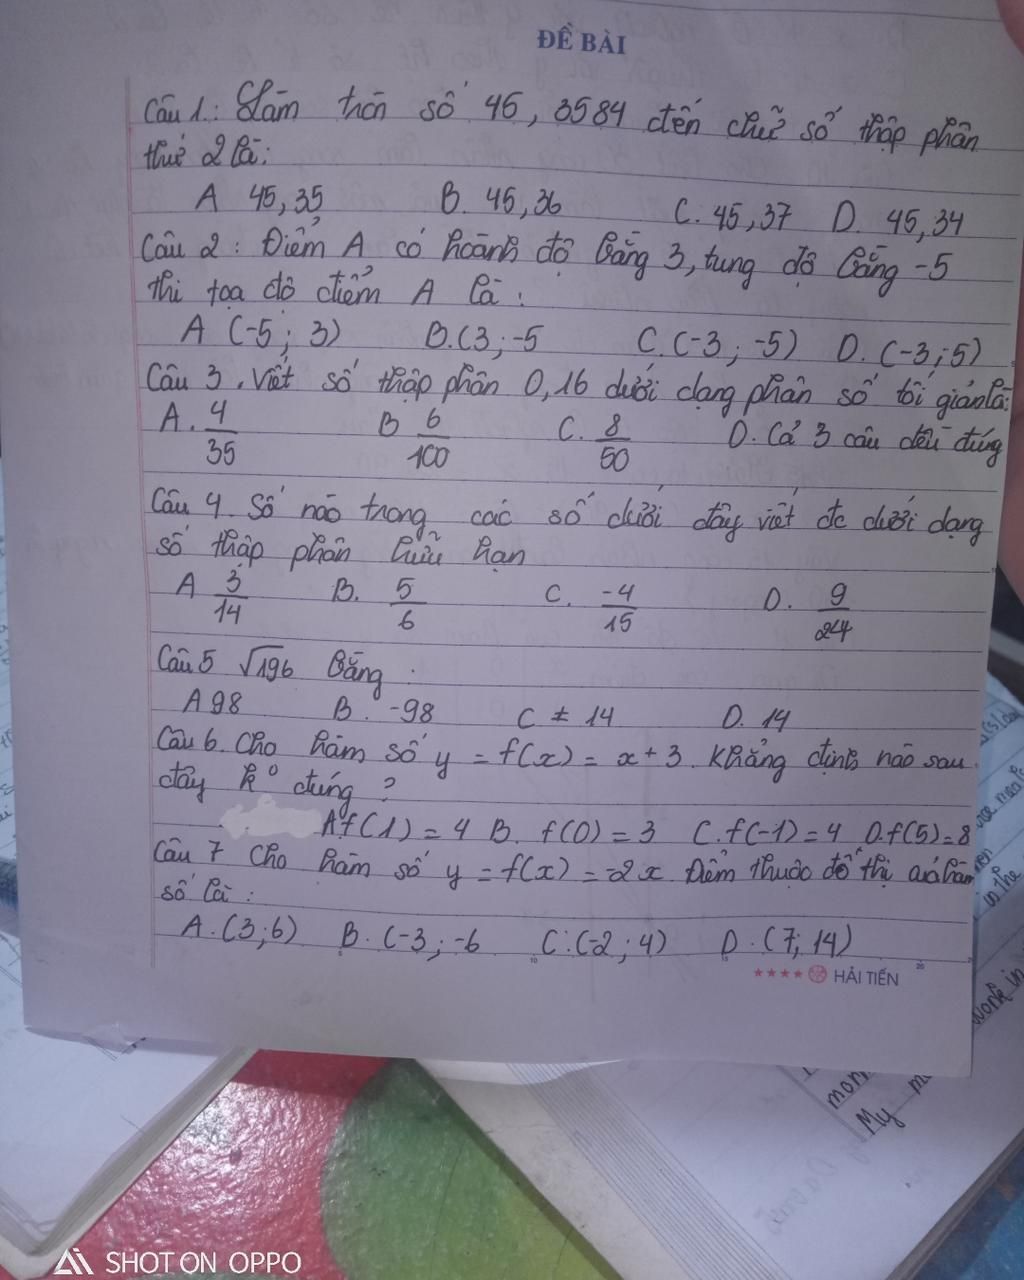 ĐỀ BÀI
Câu 1: Làm tròn số 45, 3584 đến chữ số thập phân
thứ 2 là:
A 45, 35 B. 45, 36 C. 45, 37 D. 45, 34
Câu 2: Điểm A có hoành độ bằng 3, tung độ bằng -5
thì tọa độ điểm A là:
A (-5; 3) B. (3; -5 C. (-3; -5) D. (-3; 5)
Câu 3. Viết số thập phân 0,16 dưới dạng phân số tối giản là:
A. 4/35 B 6/100 C. 8/50 D. Cả 3 câu đều đúng
Câu 4. Số nào trong các số dưới đây viết đc dưới dạng
số thập phân hữu hạn
A 3/14 B. 5/6 C. -4/15 D. 9/24
Câu 5 √196 bằng
A 98 B. -98 C ± 14 D. 14
Câu 6. Cho hàm số y = f(x) = x + 3. Khẳng định nào sau
đây k° đúng?
A f(1) = 4 B. f(0) = 3 C. f(-1) = 4 D. f(5) = 8
Câu 7 Cho hàm số y = f(x) = -2x Điểm thuộc đồ thị của hàm
số là:
A. (3; 6) B. (-3; -6 C: (-2; 4) D. (7; 14)
HẢI TIẾN
work in
mon
My m
SHOT ON OPPO